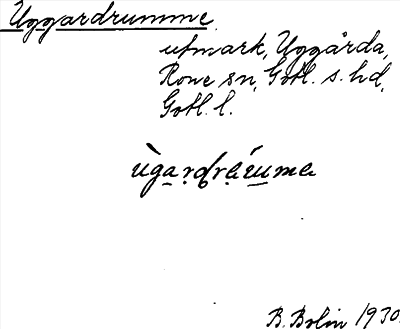 Uggardrumme
utmark, Uggårda,
Rone sn, Gotl. s. hd,
Gotl. l.
ùgạṛdrạúụma
B. Bolin 1930.